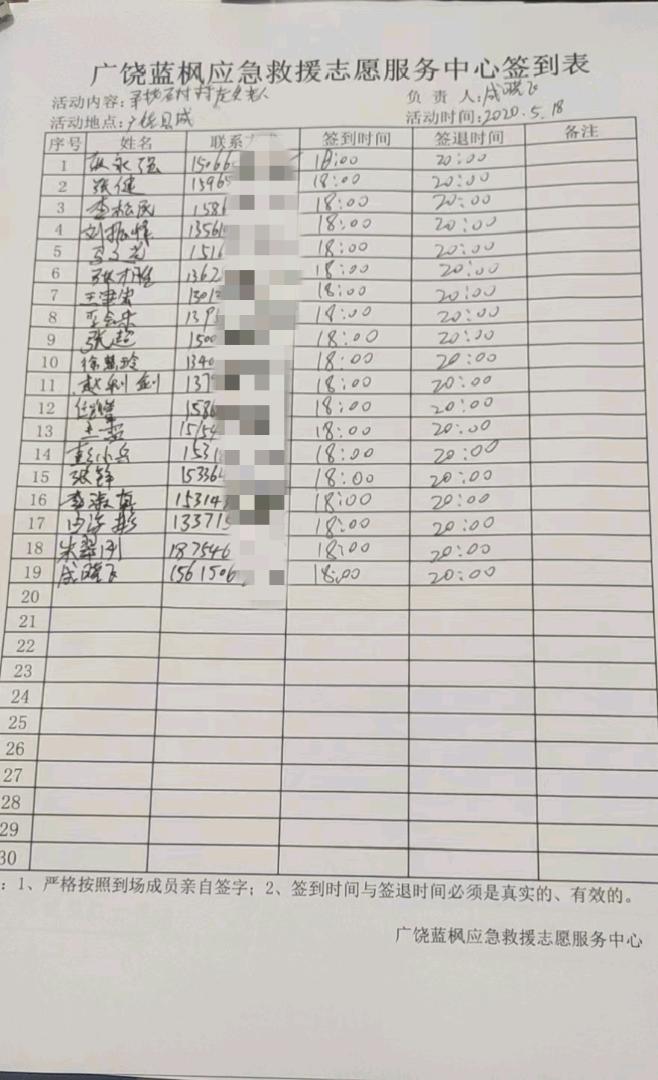 广饶蓝枫应急救援志愿服务中心签到表
活动内容: 寻找石村村走失老人 负责人: 成晓飞
活动地点: 广饶县城 活动时间: 2020.5.18
序号 姓名 联系方 签到时间 签退时间 备注
1 永强 15066 18:00 20:00
2 张健 13965 18:00 20:00
3 李松民 1586 18:00 20:00
4 刘振 13561 18:00 20:00
5 1516 18:00 20:00
6 张 胜 1362 18:00 20:00
7 王 1301 18:00 20:00
8 139 18:00 20:00
9 张超 1500 18:00 20:00
10 徐慧玲 1340 18:00 20:00
11 赵利剑 137 18:00 20:00
12 任 1586 18:00 20:00
13 王 15154 18:00 20:00
14 彭小兵 1531 18:00 20:00
15 张锋 153364 18:00 20:00
16 李淑真 153143 18:00 20:00
17 133715 18:00 20:00
18 朱翠 187546 18:00 20:00
19 成晓飞 1561506 18:00 20:00
20
21
22
23
24
25
26
27
28
29
30
: 1、严格按照到场成员亲自签字; 2、签到时间与签退时间必须是真实的、有效的。
广饶蓝枫应急救援志愿服务中心